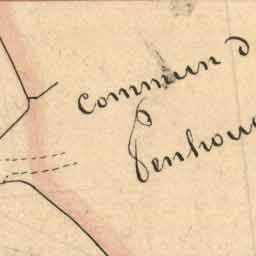 commun d
Penhoue